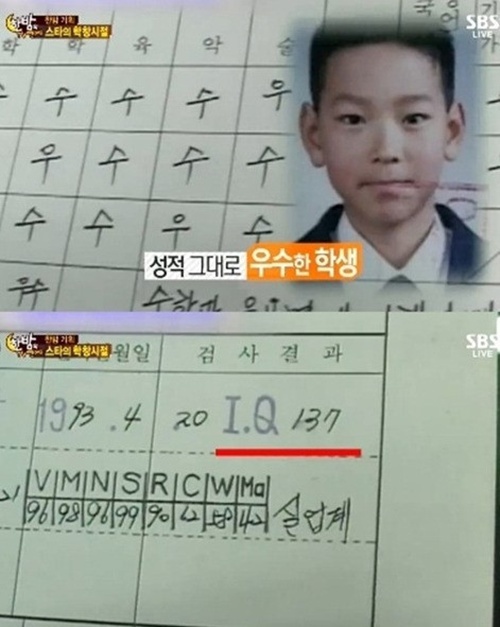 한밤 전념 기획
스타의 학창시절
SBS
LIVE
국어
화 육 악 술
수 수 수 우
우 수 수 수
수 수 우 수
우수
성적 그대로 우수한 학생
한밤
스타의 학창시절
SBS
LIVE
월일 검사결과
1993.4 20 I.Q 137
V M N S R C W Ma
96 98 96 99 90 62 58 42 실업계